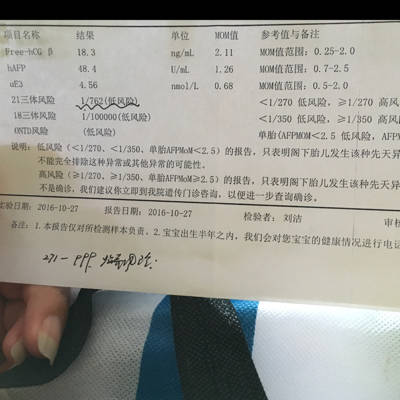 项目名称 结果 单位 MOM值 参考值与备注
Free-hCG β 18.3 ng/mL 2.11 MOM值范围：0.25-2.0
hAFP 48.4 U/mL 1.26 MOM值范围：0.7-2.5
uE3 4.56 nmol/L 0.68 MOM值范围：0.5-2.0
21三体风险 1/762(低风险) <1/270 低风险，≥1/270 高风
18三体风险 1/100000(低风险) <1/350 低风险，≥1/350 高风
ONTD风险 (低风险) 单胎(AFPMOM<2.5 低风险，AFP
说明：低风险（<1/270、<1/350、单胎AFPMoM<2.5）的报告，只表明阁下胎儿发生该种先天异
不能完全排除这种异常或其他异常的可能性。
高风险（≥1/270、≥1/350、单胎AFPMoM≥2.5）的报告，只表明阁下胎儿发生该种先天异
不是确诊，我们建议你立即到我院遗传门诊咨询，以便进一步查询确诊。
实验日期：2016-10-27 报告日期：2016-10-27 检验者：刘洁 审核
备注：1.本报告仅对所检测样本负责。2.宝宝出生半年之内，我们会对您宝宝的健康情况进行电话
271-999